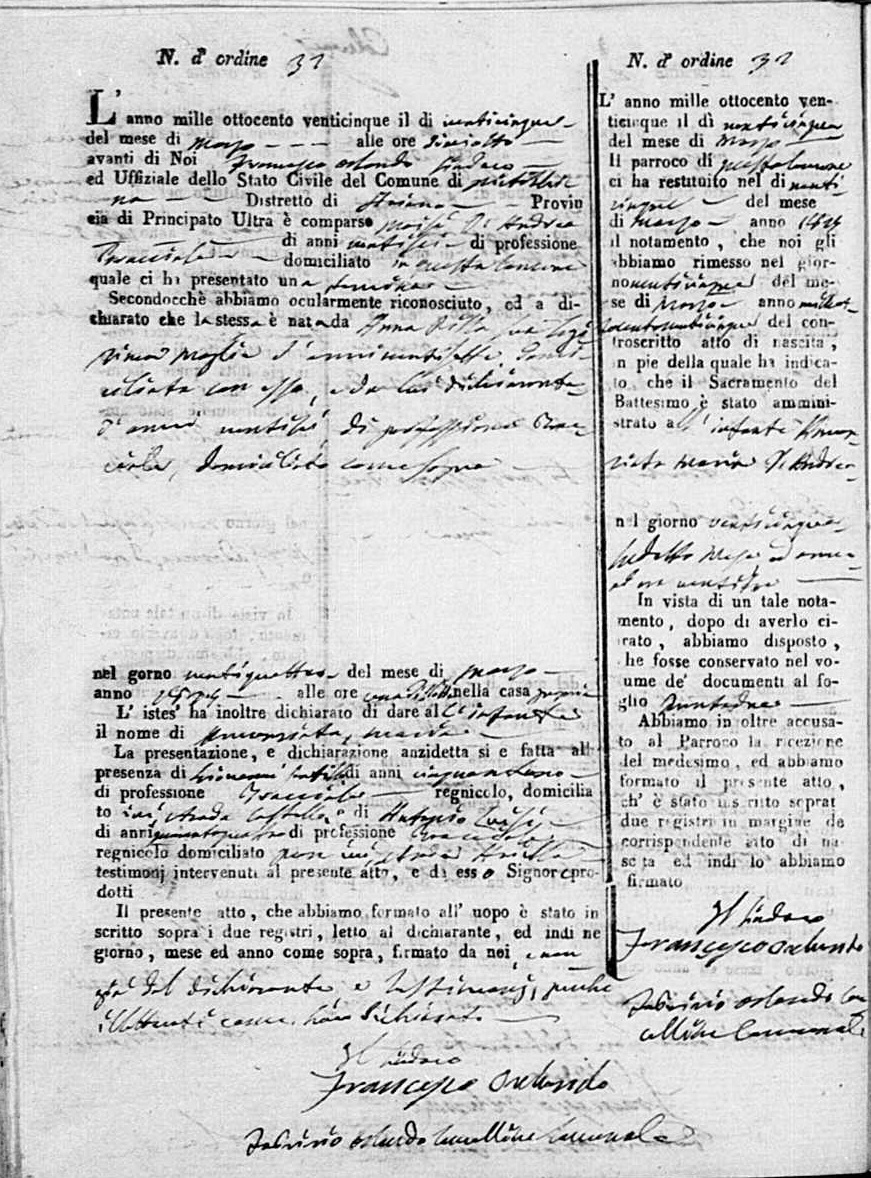 N. d' ordine 32
L' anno mille ottocento venticinque il di venticinque
del mese di marzo alle ore diciotto
avanti di Noi Francesco Orlando Sindaco
ed Uffiziale dello Stato Civile del Comune di
na Distretto di Ariano Provin
cia di Principato Ultra è comparso Moisè Di Andrea
Bracciale di anni ventisei di professione
domiciliato in questo Comune
quale ci ha presentato una femina
Secondocchè abbiamo ocularmente riconosciuto, ed a di-
chiarato che la stessa è nata da Anna Rilla sua legi
tima moglie d'anni ventisette domi
ciliata con esso, e da lui dichiarante
d'anni ventisei di professione Brac
ciale, domiciliato come sopra
nel gorno ventiquattro del mese di marzo
anno alle ore nella casa propria
L' istes' ha inoltre dichiarato di dare all'infante
il nome di Annunziata, Maria
La presentazione, e dichiarazione anzidetta si e fatta all
presenza di Giovanni di anni cinquantuno
di professione Bracciale regnicolo, domicilia
to ivi, strada Castello, e di Antonio
di anni di professione Bracciale
regnicolo domiciliato pure ivi strada
testimonj intervenuti al presente atto, e di esso Signore pro-
dotti
Il presente atto, che abbiamo formato all' uopo è stato in
scritto sopra i due registri, letto al dichiarante, ed indi ne
giorno, mese ed anno come sopra, firmato da noi, e non
già del dichiarante e testimonj, perché
illetterati come han dichiarato
Il Sindaco
Francesco Orlando
Orlando Cancelliere Comunale
N. d' ordine 32
L' anno mille ottocento ven-
ticinque il dì venticinque
del mese di Marzo
Il parroco di questo Comune
ci ha restituito nel di venti-
cinque del mese
di Marzo anno 1825
il notamento, che noi gli
abbiamo rimesso nel gior-
no venticinque del me-
se di Marzo anno milleot-
tocentoventicinque del con-
troscritto atto di nascita,
in pie della quale ha indica-
to, che il Sacramento del
Battesimo è stato ammini-
strato all'infante Annun-
ziata Maria Di Andrea
nel giorno venticinque
sudetto mese ed anno
ad ore ventidue
In vista di un tale nota-
mento, dopo di averlo ci-
rato, abbiamo disposto,
he fosse conservato nel vo-
ume de' documenti al fo-
glio trentadue
Abbiamo in oltre accusa-
to al Parroco la ricezione
del medesimo, ed abbiamo
formato il presente atto,
ch' è stato inscritto soprat
due registri in margine de
corrispondente atto di na-
scita ed indi lo abbiamo
firmato
Il Sindaco
Francesco Orlando
Orlando Can
celliere Comunale